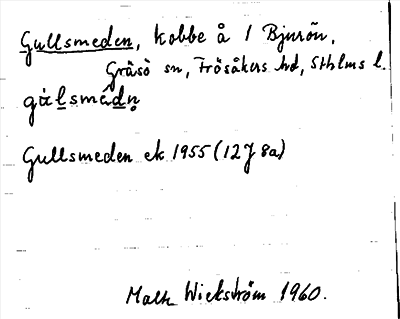 Gullsmeden, kobbe å I Bjurön,
Gräsö sn, Frösåkers hd, Sthlms l.
Gullsmeden ek 1955 (12J 8a)
Wickström 1960.